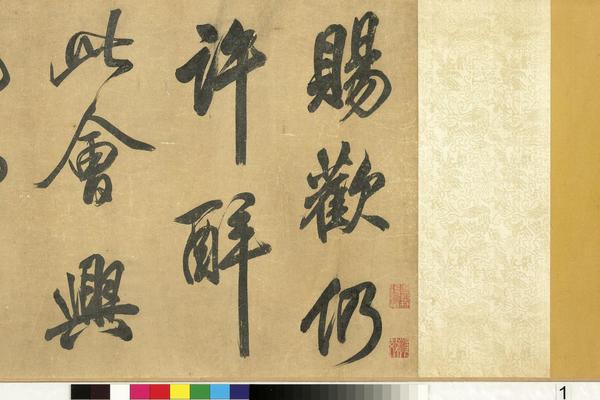 賜歡仍
許醉
此會興
1